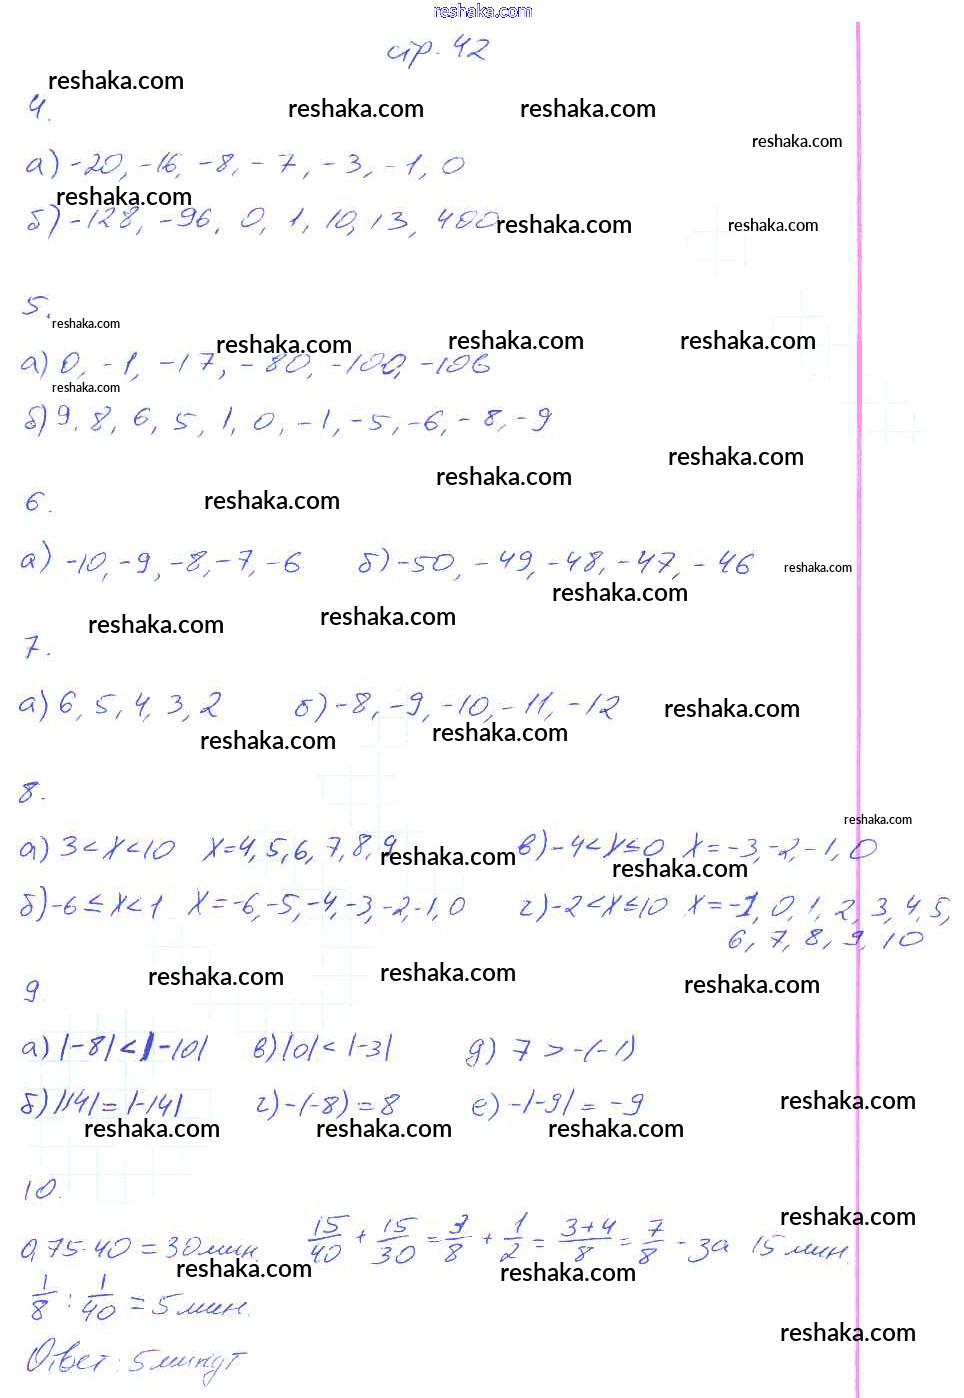 reshaka.com
стр. 42
reshaka.com
4.
reshaka.com reshaka.com
reshaka.com
а) -20, -16, -8, -7, -3, -1, 0
reshaka.com
б) -128, -96, 0, 1, 10, 13, 400
reshaka.com reshaka.com
5.
reshaka.com
reshaka.com reshaka.com reshaka.com
а) 0, -1, -17, -80, -100, -106
reshaka.com
б) 9, 8, 6, 5, 1, 0, -1, -5, -6, -8, -9
reshaka.com
reshaka.com
6.
reshaka.com
а) -10, -9, -8, -7, -6 б) -50, -49, -48, -47, -46
reshaka.com
reshaka.com
reshaka.com reshaka.com
7.
а) 6, 5, 4, 3, 2 б) -8, -9, -10, -11, -12
reshaka.com
reshaka.com reshaka.com
8.
reshaka.com
а) 3 < x < 10 x = 4, 5, 6, 7, 8, 9 в) -4 < x ≤ 0 x = -3, -2, -1, 0
reshaka.com reshaka.com
б) -6 ≤ x < 1 x = -6, -5, -4, -3, -2, -1, 0 г) -2 < x ≤ 10 x = -1, 0, 1, 2, 3, 4, 5,
6, 7, 8, 9, 10
reshaka.com reshaka.com reshaka.com
9.
а) |-8| < |-10| в) |0| < |-3| д) 7 > -(-1)
б) |14| = |-14| г) -(-8) = 8 е) -|-9| = -9
reshaka.com
reshaka.com reshaka.com reshaka.com
10.
reshaka.com
0,75·40 = 30 мин. 15/40 + 15/30 = 3/8 + 1/2 = 3+4/8 = 7/8 - за 15 мин.
reshaka.com reshaka.com
1/8 : 1/40 = 5 мин.
reshaka.com
Ответ: 5 минут